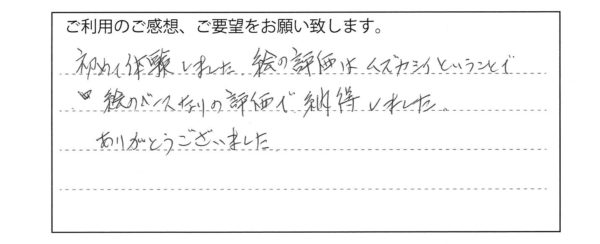 ご利用のご感想、ご要望をお願い致します。
初めて体験しました 絵の評価はムズカシイということで
絵のベースなりの評価で納得しました。
ありがとうございました